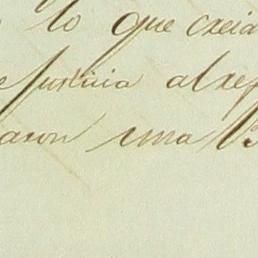 lo que creia
Justicia al re
aron una B